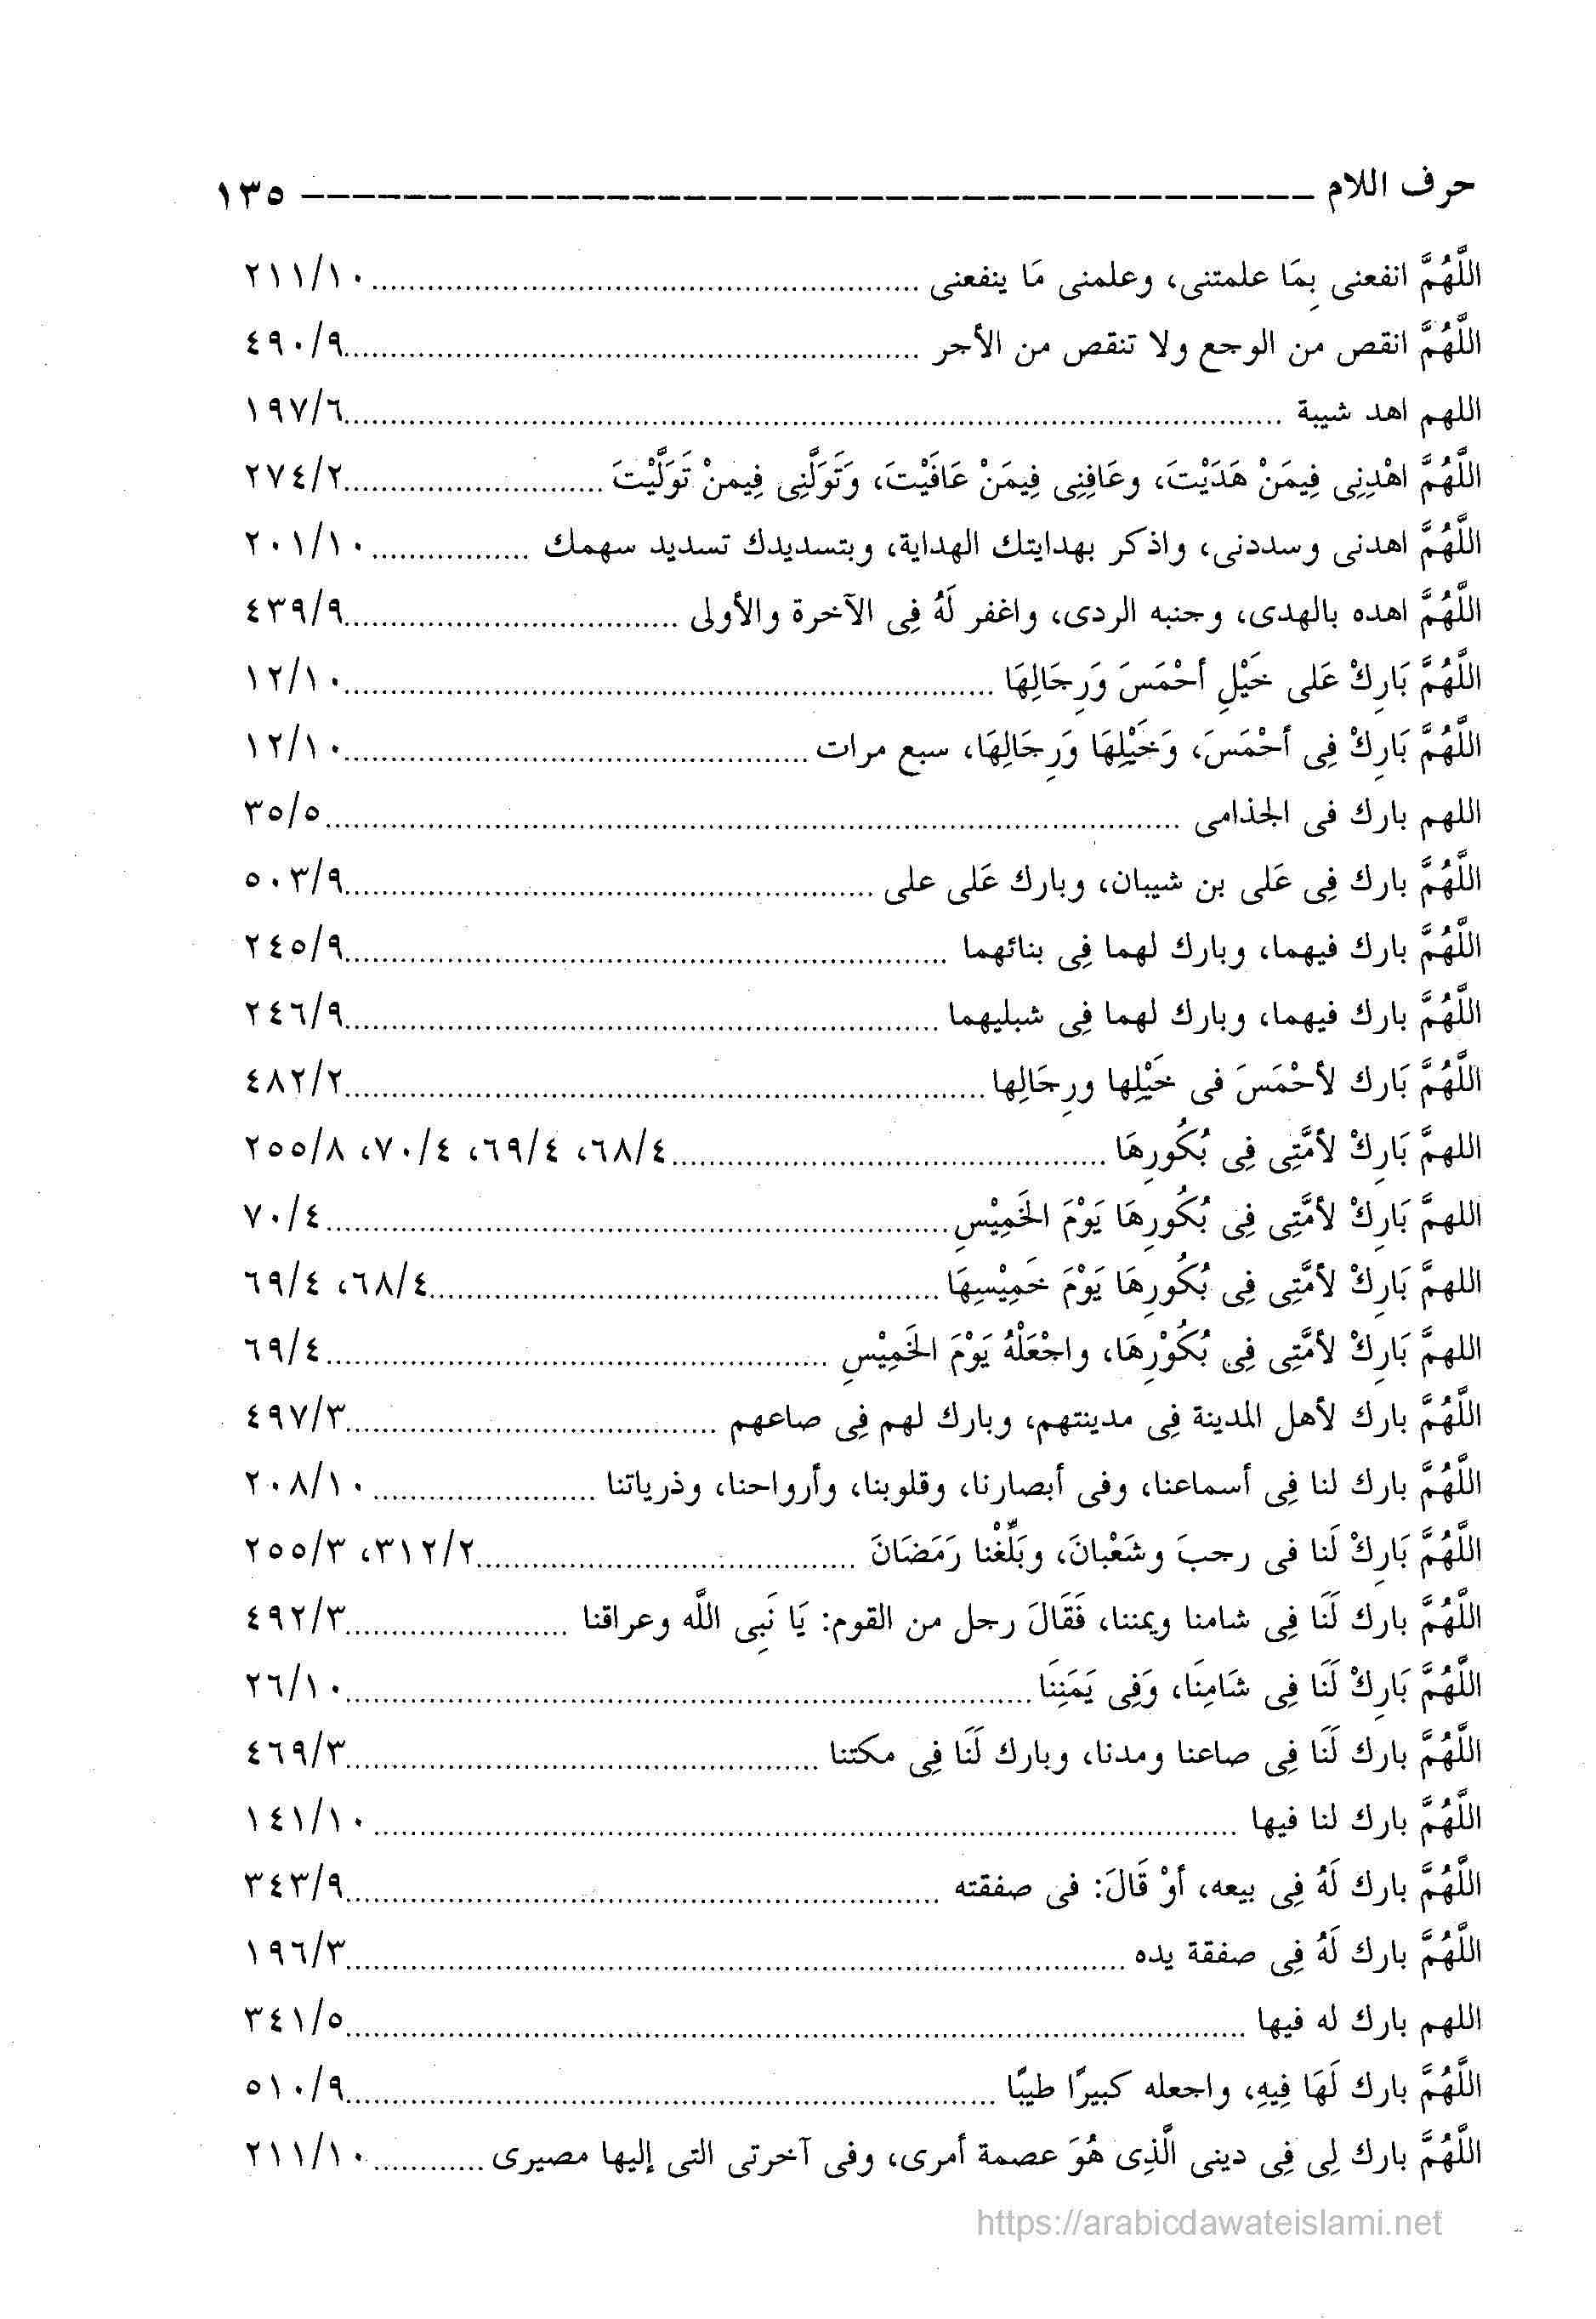 حرف اللام ــــــــــــــــــــــــــــــــــــــــ ١٣٥
اللَّهُمَّ انفعنى بِمَا علمتنى، وعلمنى مَا ينفعنى ............ ٢١١/١٠
اللَّهُمَّ انقص من الوجع ولا تنقص من الأجر ............ ٤٩٠/٩
اللهم اهد شيبة ............ ١٩٧/٦
اللَّهُمَّ اهْدِنِى فِيمَنْ هَدَيْتَ، وعَافِنِى فِيمَنْ عَافَيْتَ، وَتَوَلَّنِى فِيمنْ تَوَلَّيْتَ ............ ٢٧٤/٢
اللَّهُمَّ اهدنى وسددنى، واذكر بهدايتك الهداية، وبتسديدك تسديد سهمك ............ ٢٠١/١٠
اللَّهُمَّ اهده بالهدى، وجنبه الردى، واغفر لَهُ فِى الآخرة والأولى ............ ٤٣٩/٩
اللَّهُمَّ بَارِكْ عَلى خَيْلِ أحْمَسَ وَرِجَالِهَا ............ ١٢/١٠
اللَّهُمَّ بَارِكْ فِى أحْمَسَ، وَخَيْلِهَا وَرِجَالِهَا، سبع مرات ............ ١٢/١٠
اللهم بارك فى الجذامى ............ ٣٥/٥
اللَّهُمَّ بارك فِى عَلى بن شيبان، وبارك عَلى على ............ ٥٠٣/٩
اللَّهُمَّ بارك فيهما، وبارك لهما فِى بنائهما ............ ٢٤٥/٩
اللَّهُمَّ بارك فيهما، وبارك لهما فِى شبليهما ............ ٢٤٦/٩
اللَّهُمَّ بَارك لأحْمَسَ فى خَيْلِها ورِجَالِها ............ ٤٨٢/٢
اللهمَّ بَارِكْ لأمَّتِى فِى بُكُورِهَا ............ ٦٨/٤، ٦٩/٤، ٧٠/٤، ٢٥٥/٨
اللهمَّ بَارِكْ لأمَّتِى فِى بُكُورِهَا يَوْمَ الخَمِيْسِ ............ ٧٠/٤
اللهمَّ بَارِكْ لأمَّتِى فِى بُكُورِهَا يَوْمَ خَمِيْسِهَا ............ ٦٨/٤، ٦٩/٤
اللهمَّ بَارِكْ لأمَّتِى فِى بُكُوْرِهَا، واجْعَلْهُ يَوْمَ الخَمِيْسِ ............ ٦٩/٤
اللَّهُمَّ بارك لأهل المدينة فِى مدينتهم، وبارك لهم فِى صاعهم ............ ٤٩٧/٣
اللَّهُمَّ بارك لنا فِى أسماعنا، وفى أبصارنا، وقلوبنا، وأرواحنا، وذرياتنا ............ ٢٠٨/١٠
اللَّهُمَّ بَارِكْ لَنا فى رجبَ وشَعْبانَ، وبَلِّغْنا رَمَضَانَ ............ ٣١٢/٢، ٢٥٥/٣
اللَّهُمَّ بارك لَنَا فِى شامنا ويمننا، فَقَالَ رجل من القوم: يَا نَبِى اللَّه وعراقنا ............ ٤٩٢/٣
اللَّهُمَّ بَارِكْ لَنَا فِى شَامِنَا، وَفِى يَمَنِنَا ............ ٢٦/١٠
اللَّهُمَّ بارك لَنَا فِى صاعنا ومدنا، وبارك لَنَا فِى مكتنا ............ ٤٦٩/٣
اللَّهُمَّ بارك لنا فيها ............ ١٤١/١٠
اللَّهُمَّ بارك لَهُ فِى بيعه، أوْ قَالَ: فى صفقته ............ ٣٤٣/٩
اللَّهُمَّ بارك لَهُ فِى صفقة يده ............ ١٩٦/٣
اللهم بارك له فيها ............ ٣٤١/٥
اللَّهُمَّ بارك لَهَا فِيهِ، واجعله كبيرًا طيبًا ............ ٥١٠/٩
اللَّهُمَّ بارك لِى فِى دينى الَّذِى هُوَ عصمة أمرى، وفى آخرتى التى إليها مصيرى ............ ٢١١/١٠
https://arabicdawateislami.net